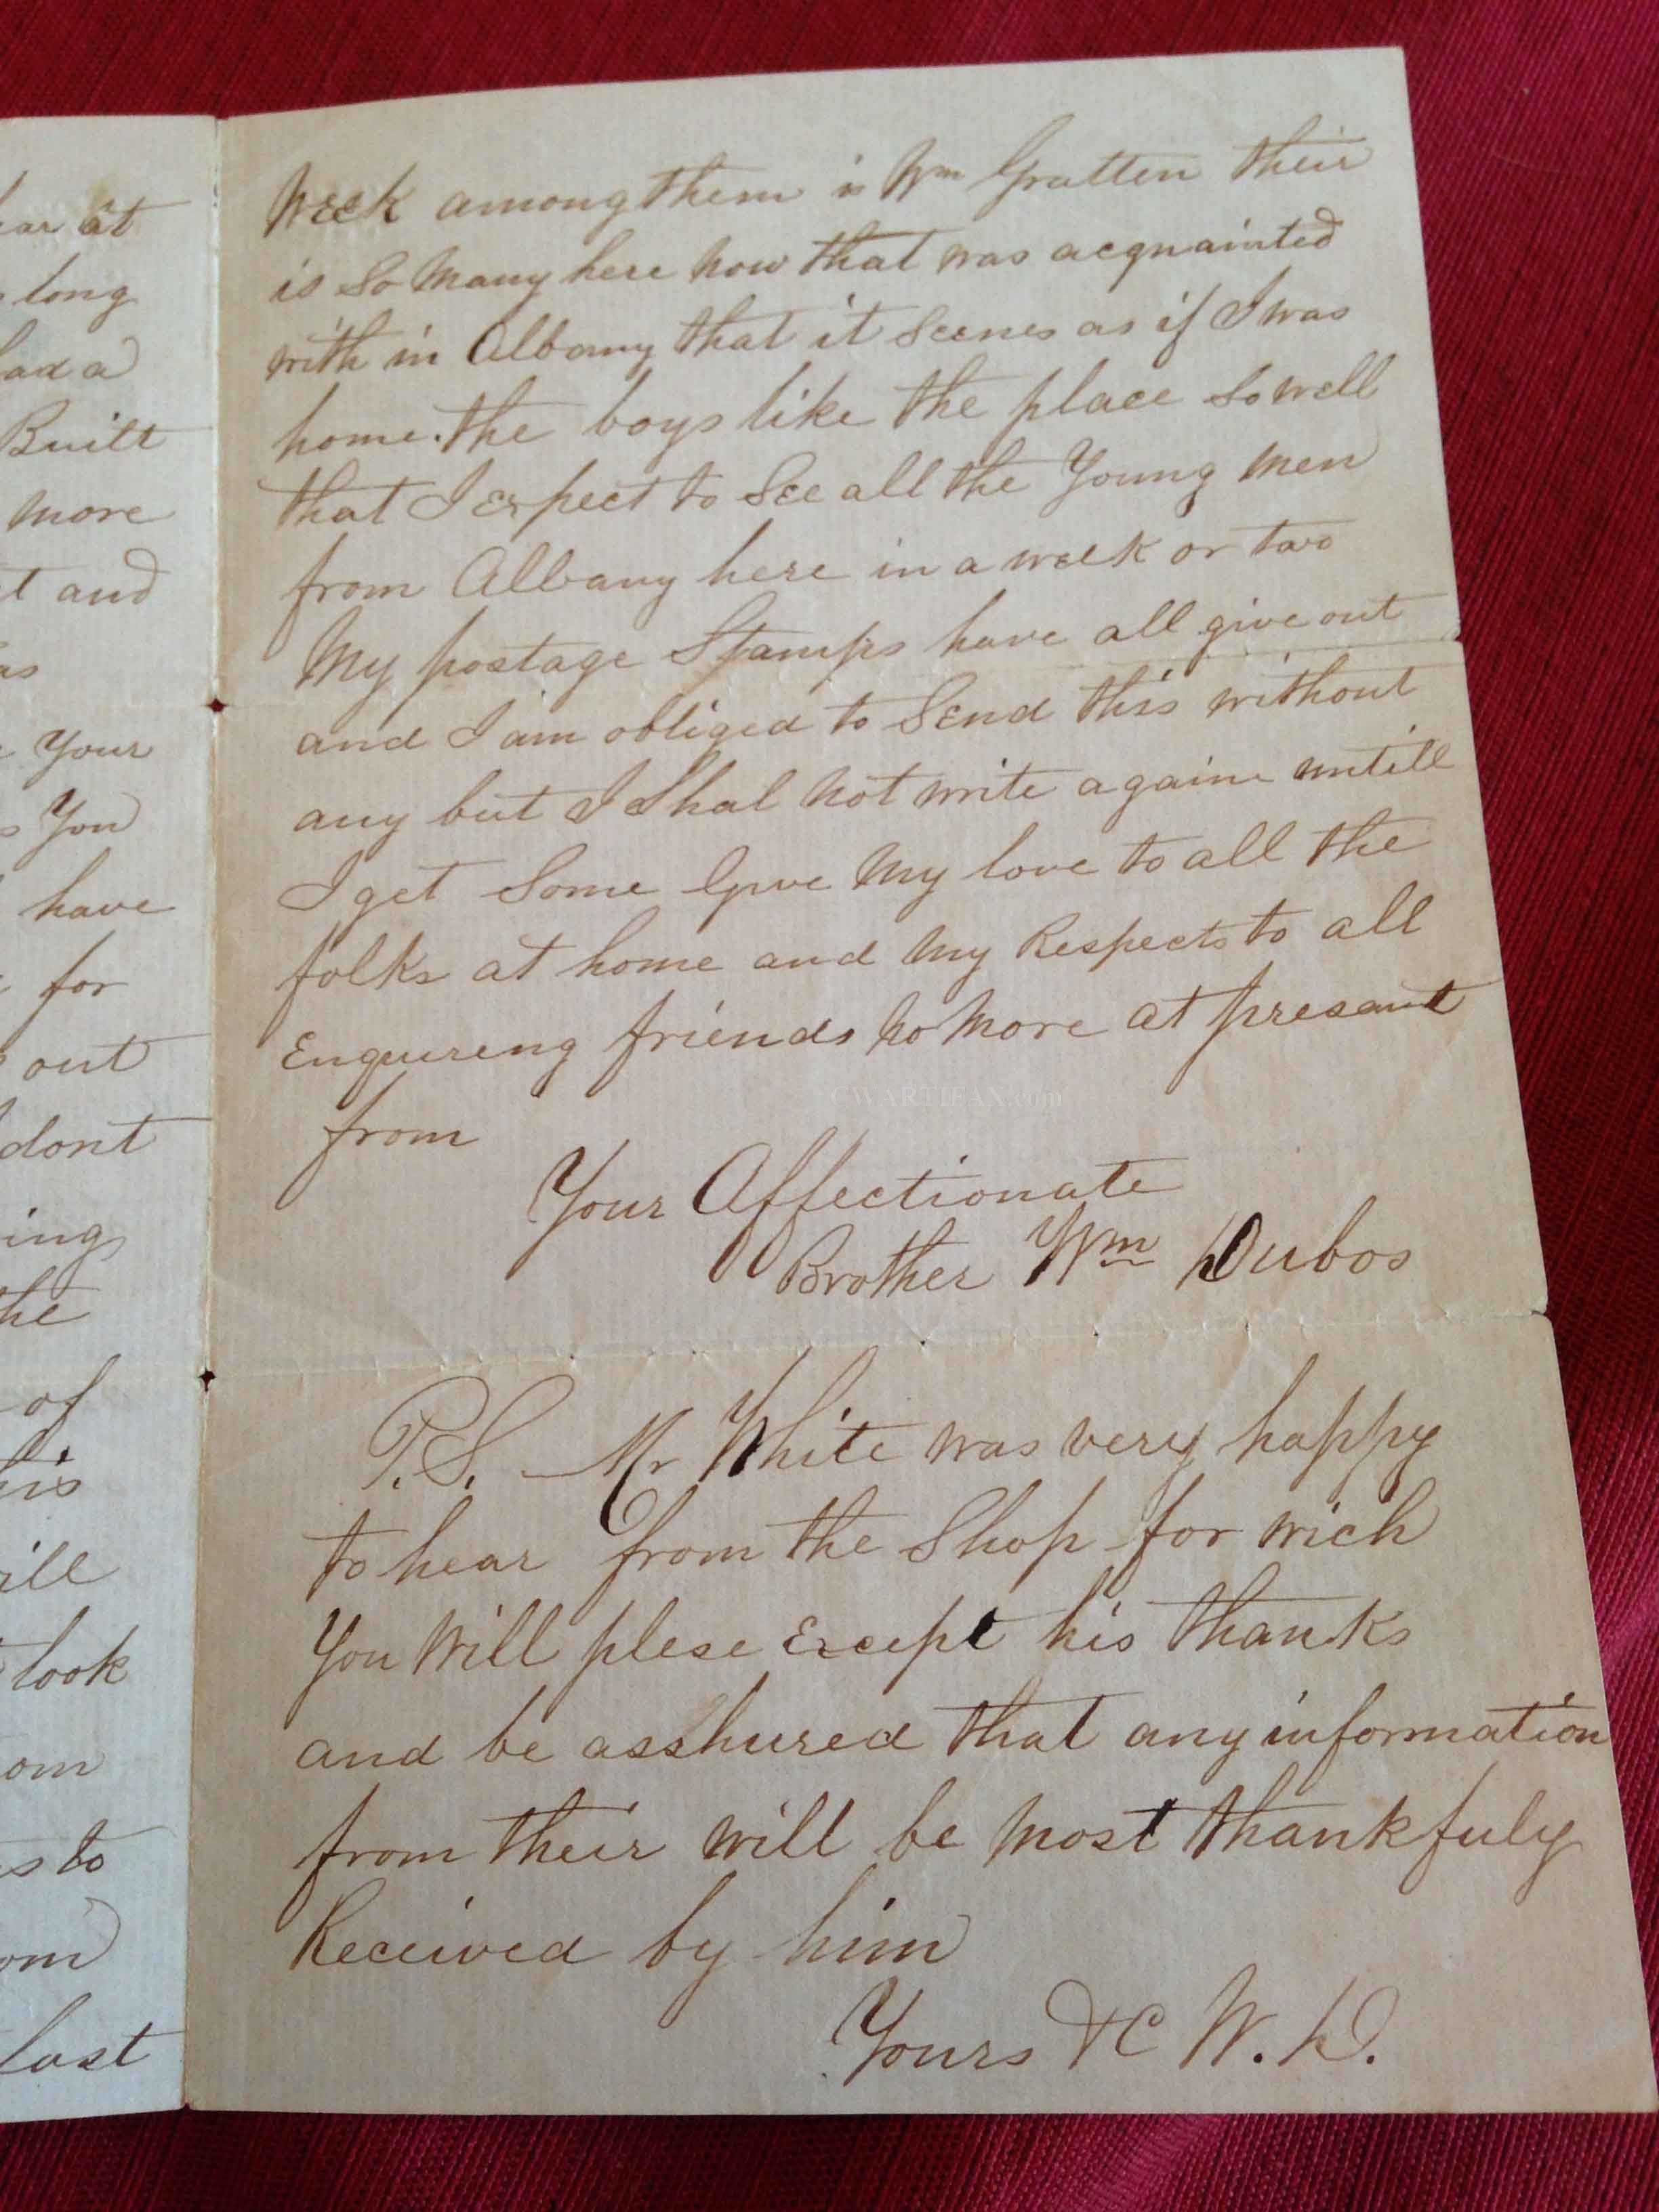 ar at
long
had a
Built
more
t and
as
Your
You
have
for
out
dont
ing
he
of
his
ill
look
om
s to
om
last
Week among them is Wm Gratten their
is So Many here now that was acqnainted
with in Albany that it Seenes as if I was
home. the boys like the place So well
that I expect to See all the Young Men
from Albany here in a week or two
My postage Stamps have all give out
and I am obliged to Send this without
any but I Shal not write againe untill
I get Some Give My love to all the
folks at home and My Respects to all
Enquireng friends no More at present
from
Your Affectionate
Brother Wm Dubos
P.S. Mr White was very happy
to hear from the Shop for wich
You Will plese Except his thanks
and be asshured that any information
from their will be Most thankfuly
Received by him
Yours &C W. D.
CWARTIFAN.com